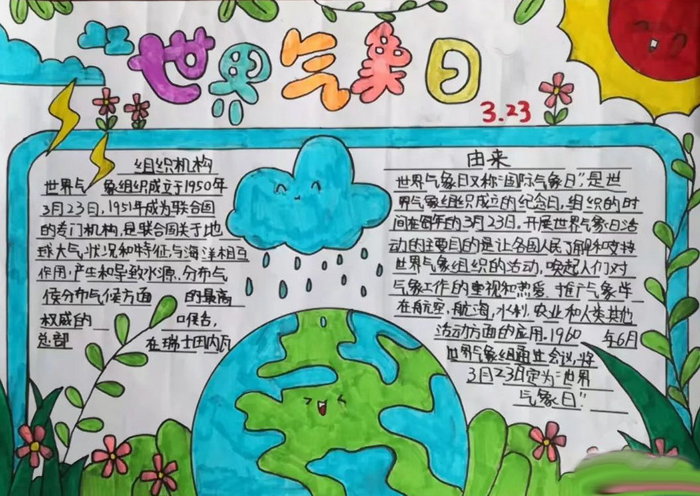 世界气象日
3.23
组织机构
世界气 象组织成立于1950年
3月23日，1951年成为联合国
的专门机构，是联合国关于地
球大气状况和特征，与海洋相互
作用，产生和导致水源 分布气
候分布气候方面 的最高
权威的 口候舌，
总部 在瑞士日内瓦
由来
世界气象日又称"国际气象日"，是世
界气象组织成立的纪念日，组织的时
间在每年的3月23日。开展世界气象日活
动的主要目的是让各国人民了解和支持
世界气象组织的活动，唤起人们对
气象工作的重视和热爱，推广气象学
在航空，航海，水利，农业和人类其他
活动方面的应用。1960 年6月
世界气象组通过会议，将
3月23日定为"世界
气象日"